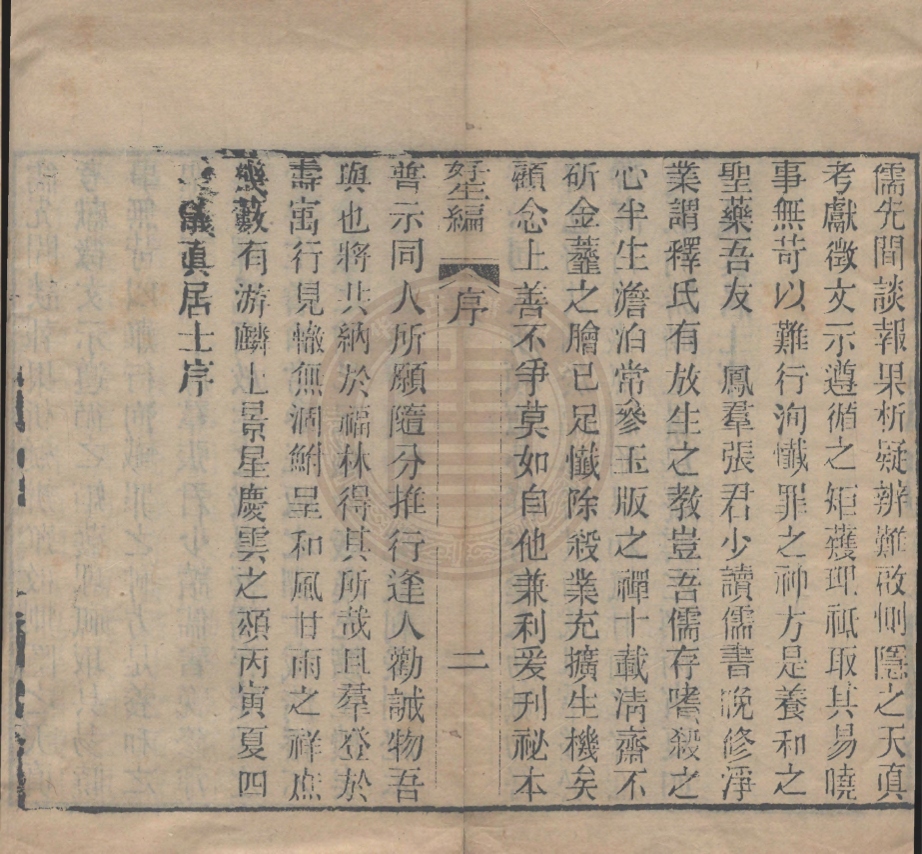 儒先閒談報果析疑辨難啟惻隱之天眞
考獻徵文示遵循之矩矱理祗取其易曉
事無苛以難行洵懺罪之神方是養和之
聖藥吾友　鳳羣張君少讀儒書晚修淨
業謂釋氏有放生之教豈吾儒存嗜殺之
心半生澹泊常參玉版之禪十載淸齋不
斫金虀之膾已足懺除殺業充擴生機矣
顧念上善不爭莫如自他兼利爰刋祕本
好生編　序　二
普示同人所願隨分推行逢人勸誡物吾
與也將共納於福林得其所哉且羣登於
壽寓行見轍無涸鮒呈和風甘雨之祥庶
藪有游麟上景星慶雲之頌丙寅夏四
儀眞居士序